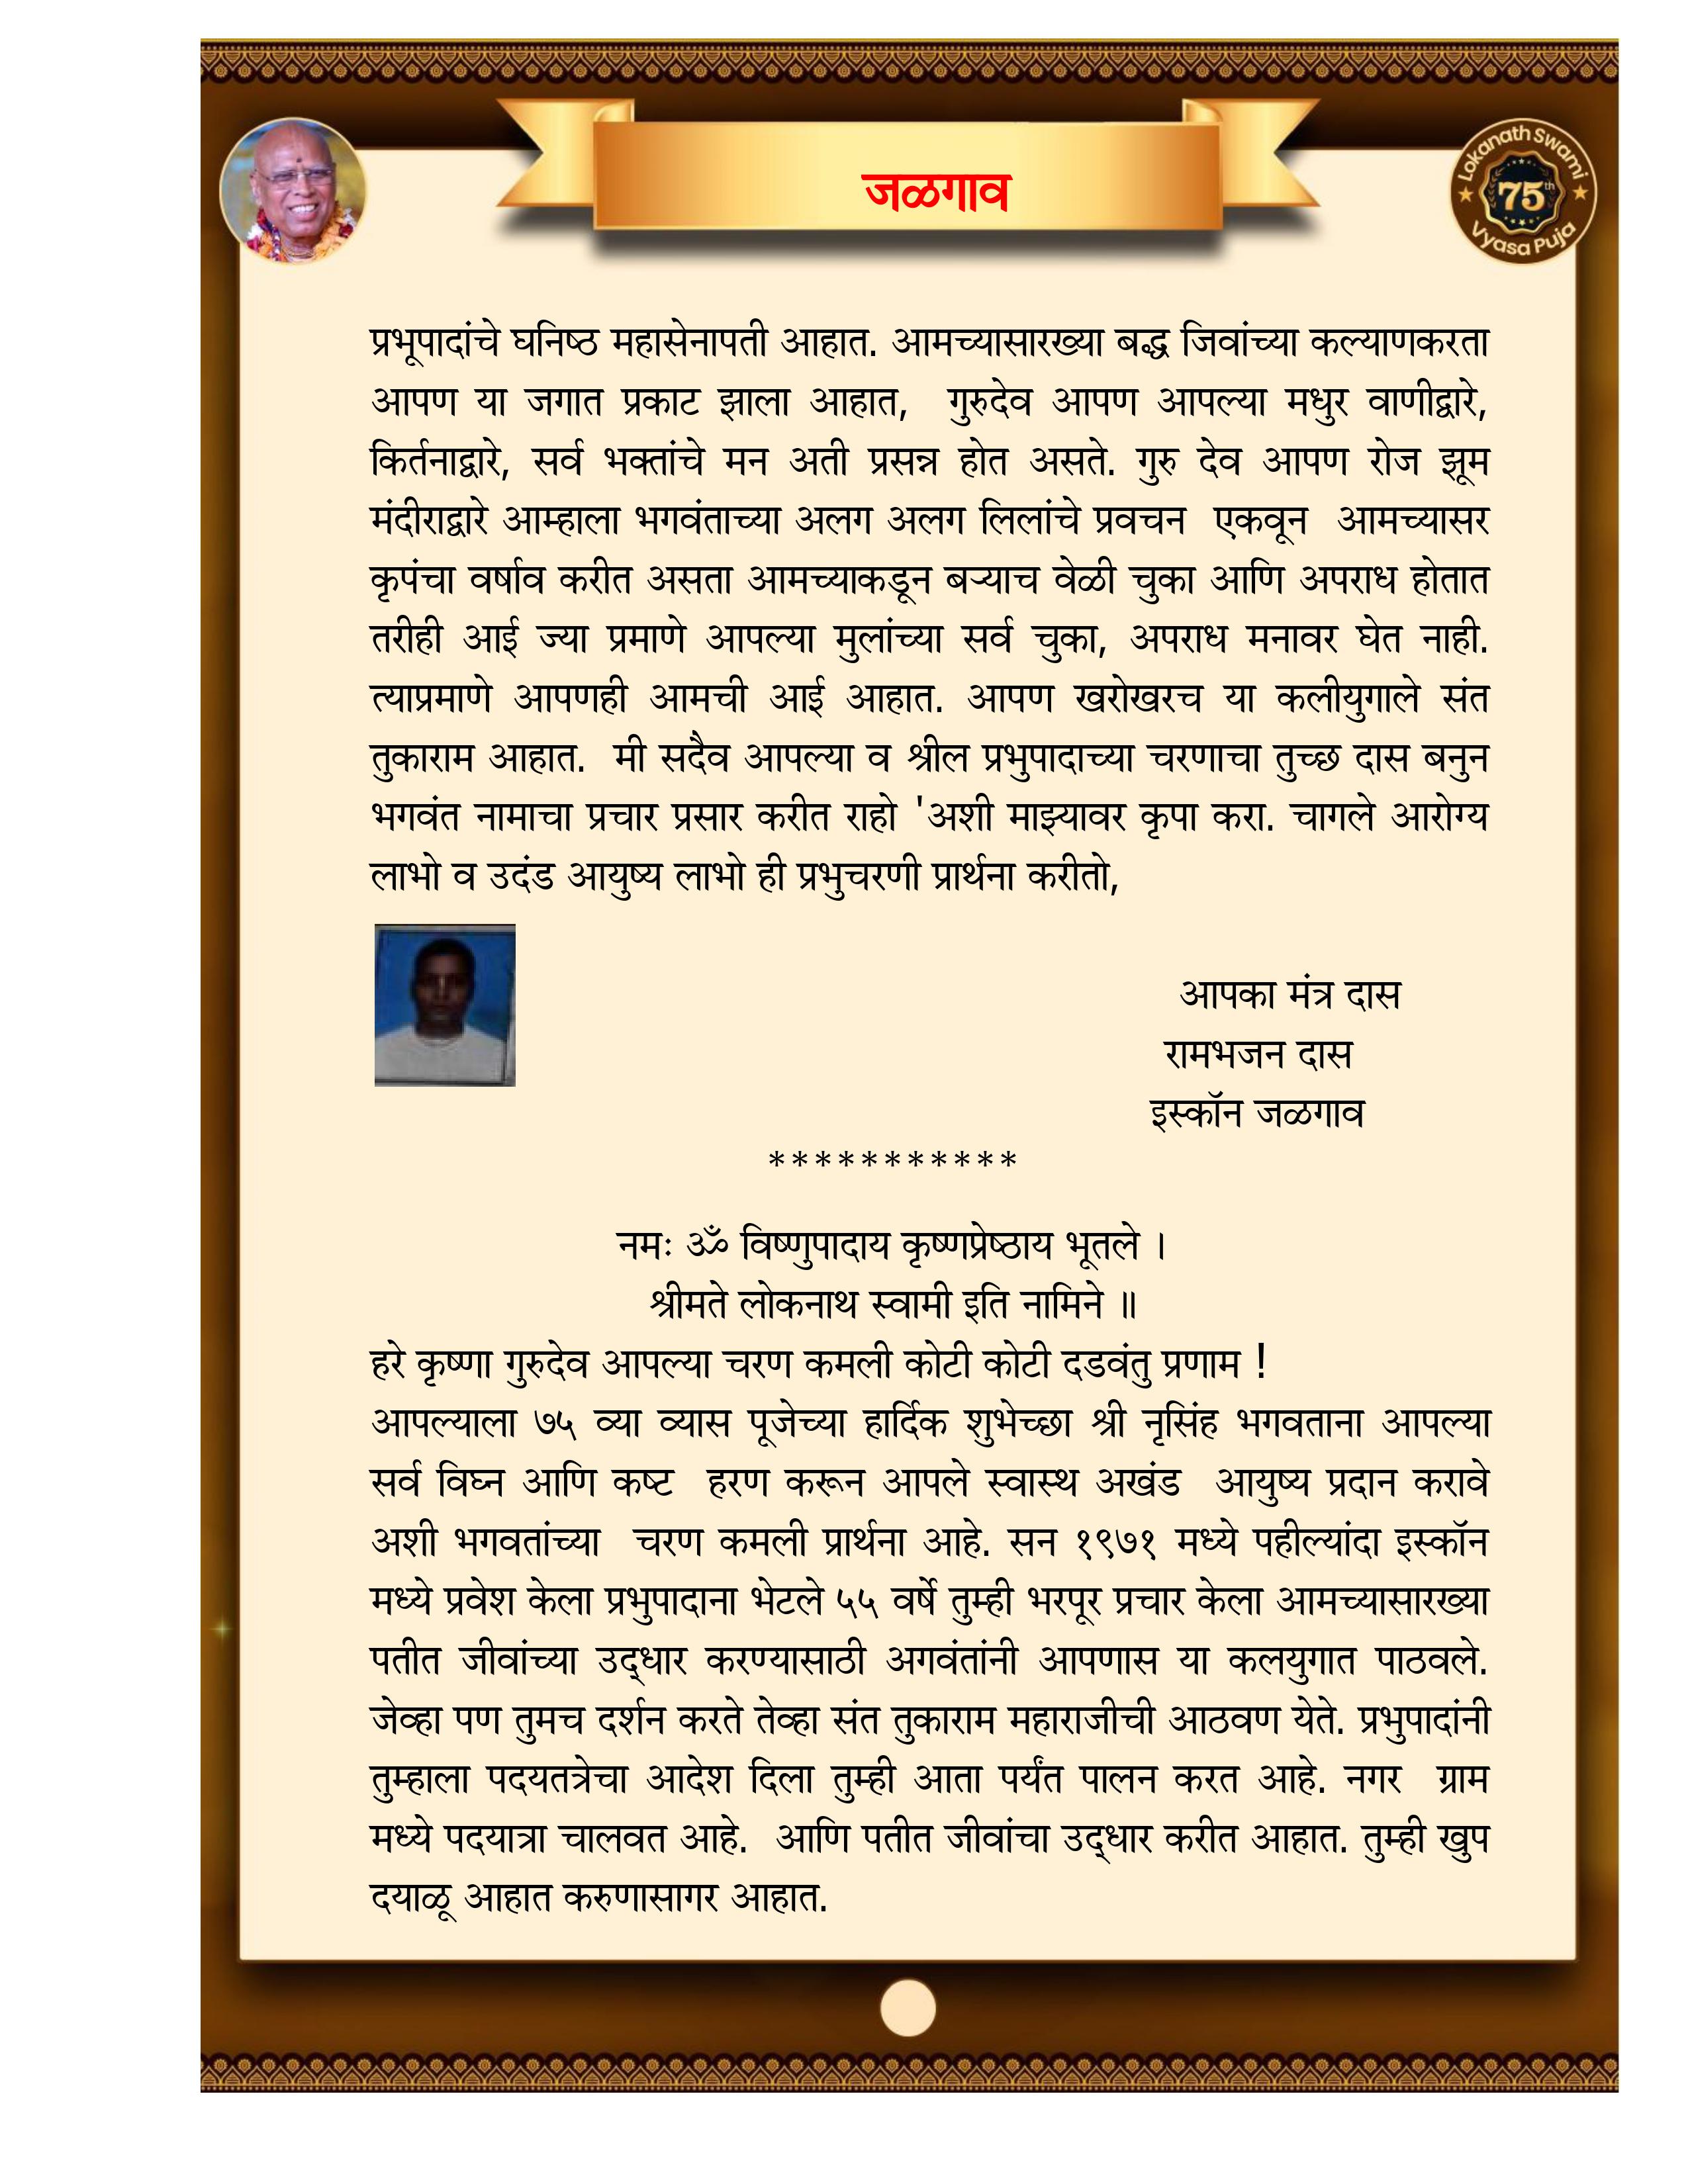 जळगाव
Lokanath Swami
75th
Vyasa Puja
प्रभूपादांचे घनिष्ठ महासेनापती आहात. आमच्यासारख्या बद्ध जिवांच्या कल्याणकरता
आपण या जगात प्रकाट झाला आहात, गुरुदेव आपण आपल्या मधुर वाणीद्वारे,
किर्तनाद्वारे, सर्व भक्तांचे मन अती प्रसन्न होत असते. गुरु देव आपण रोज झूम
मंदीराद्वारे आम्हाला भगवंताच्या अलग अलग लिलांचे प्रवचन एकवून आमच्यासर
कृपंचा वर्षाव करीत असता आमच्याकडून बऱ्याच वेळी चुका आणि अपराध होतात
तरीही आई ज्या प्रमाणे आपल्या मुलांच्या सर्व चुका, अपराध मनावर घेत नाही.
त्याप्रमाणे आपणही आमची आई आहात. आपण खरोखरच या कलीयुगाले संत
तुकाराम आहात. मी सदैव आपल्या व श्रील प्रभुपादाच्या चरणाचा तुच्छ दास बनुन
भगवंत नामाचा प्रचार प्रसार करीत राहो 'अशी माझ्यावर कृपा करा. चागले आरोग्य
लाभो व उदंड आयुष्य लाभो ही प्रभुचरणी प्रार्थना करीतो,
आपका मंत्र दास
रामभजन दास
इस्कॉन जळगाव
***********
नमः ॐ विष्णुपादाय कृष्णप्रेष्ठाय भूतले ।
श्रीमते लोकनाथ स्वामी इति नामिने ॥
हरे कृष्णा गुरुदेव आपल्या चरण कमली कोटी कोटी दडवंतु प्रणाम !
आपल्याला ७५ व्या व्यास पूजेच्या हार्दिक शुभेच्छा श्री नृसिंह भगवताना आपल्या
सर्व विघ्न आणि कष्ट हरण करून आपले स्वास्थ अखंड आयुष्य प्रदान करावे
अशी भगवतांच्या चरण कमली प्रार्थना आहे. सन १९७१ मध्ये पहील्यांदा इस्कॉन
मध्ये प्रवेश केला प्रभुपादाना भेटले ५५ वर्षे तुम्ही भरपूर प्रचार केला आमच्यासारख्या
पतीत जीवांच्या उद्धार करण्यासाठी अगवंतांनी आपणास या कलयुगात पाठवले.
जेव्हा पण तुमच दर्शन करते तेव्हा संत तुकाराम महाराजीची आठवण येते. प्रभुपादांनी
तुम्हाला पदयतत्रेचा आदेश दिला तुम्ही आता पर्यंत पालन करत आहे. नगर ग्राम
मध्ये पदयात्रा चालवत आहे. आणि पतीत जीवांचा उद्धार करीत आहात. तुम्ही खुप
दयाळू आहात करुणासागर आहात.